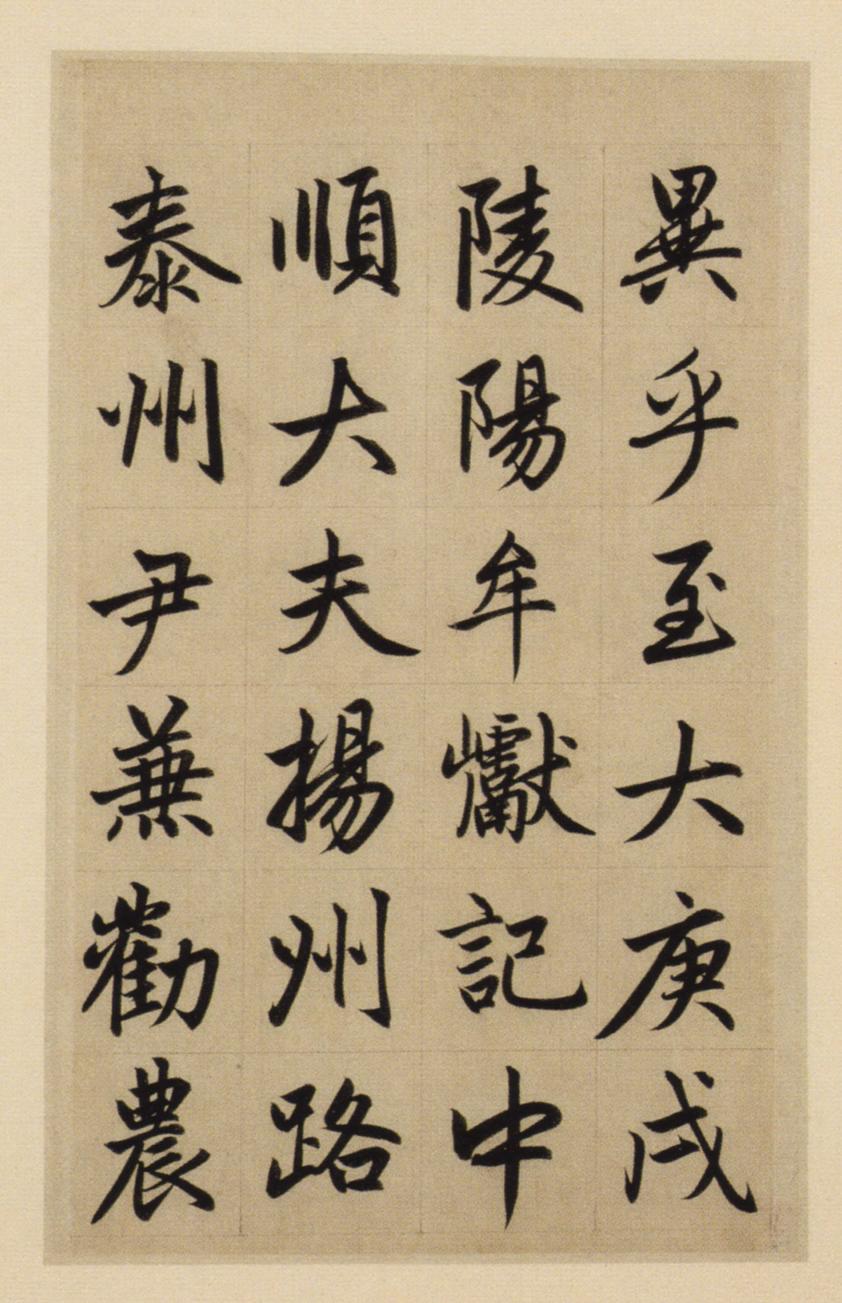 異乎至大庚戌
陵陽牟巘記中
順大夫揚州路
泰州尹蒹勸農